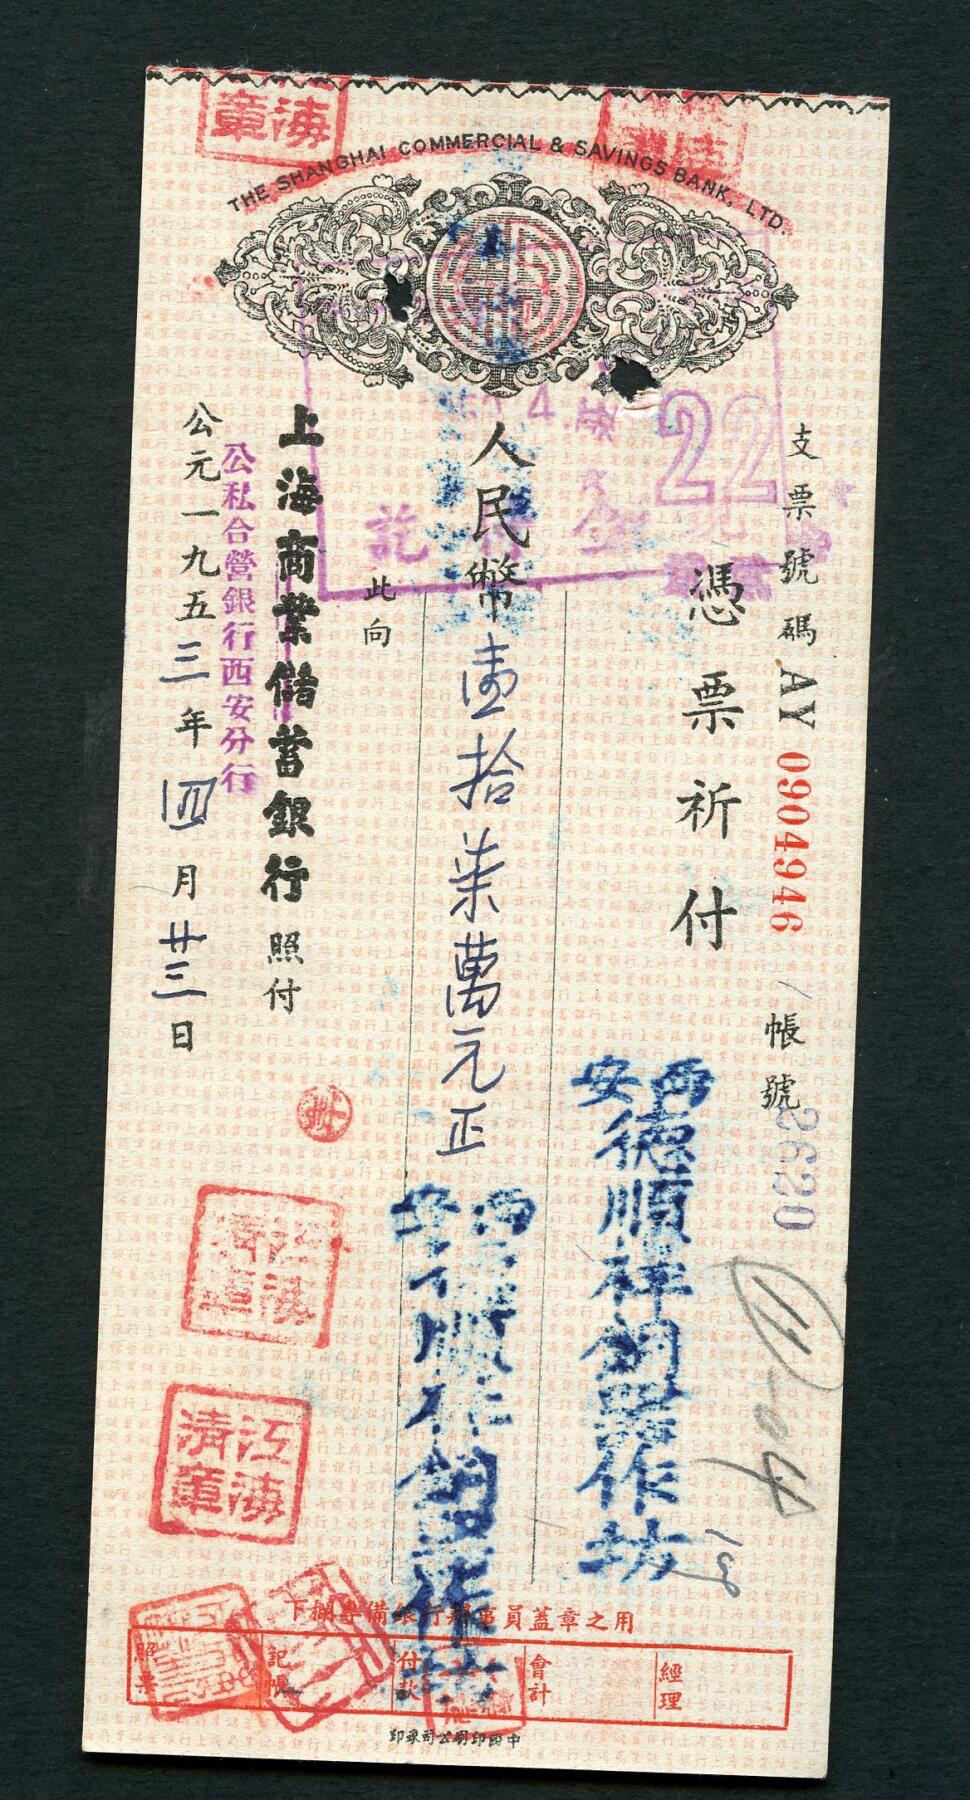 海章
THE SHANGHAI COMMERCIAL & SAVINGS BANK, LTD.
支票號碼 AY 0904946
帳號 2620
憑票祈付
西安
德順祥銅器作坊
人民幣壹拾柒萬元正
22
此向
上海商業儲蓄銀行照付
公私合營銀行西安分行
公元一九五三年四月廿三日
江海清章
江海清章
用之章蓋員事辦行銀備專欄下
經理
會計
付款
記帳
照票
中國印刷公司承印